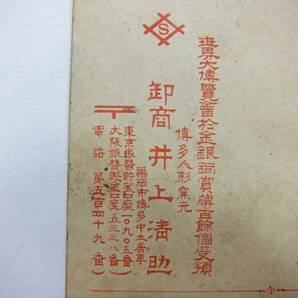 世界大博覧會於金銀銅賞牌百餘個受領
博多人形窯元
S
卸商 井上清助
福岡市博多中土居町
東京振替貯金口座一〇九〇五番
大阪振替貯金口座五三三八番
電話 第五百四十九番